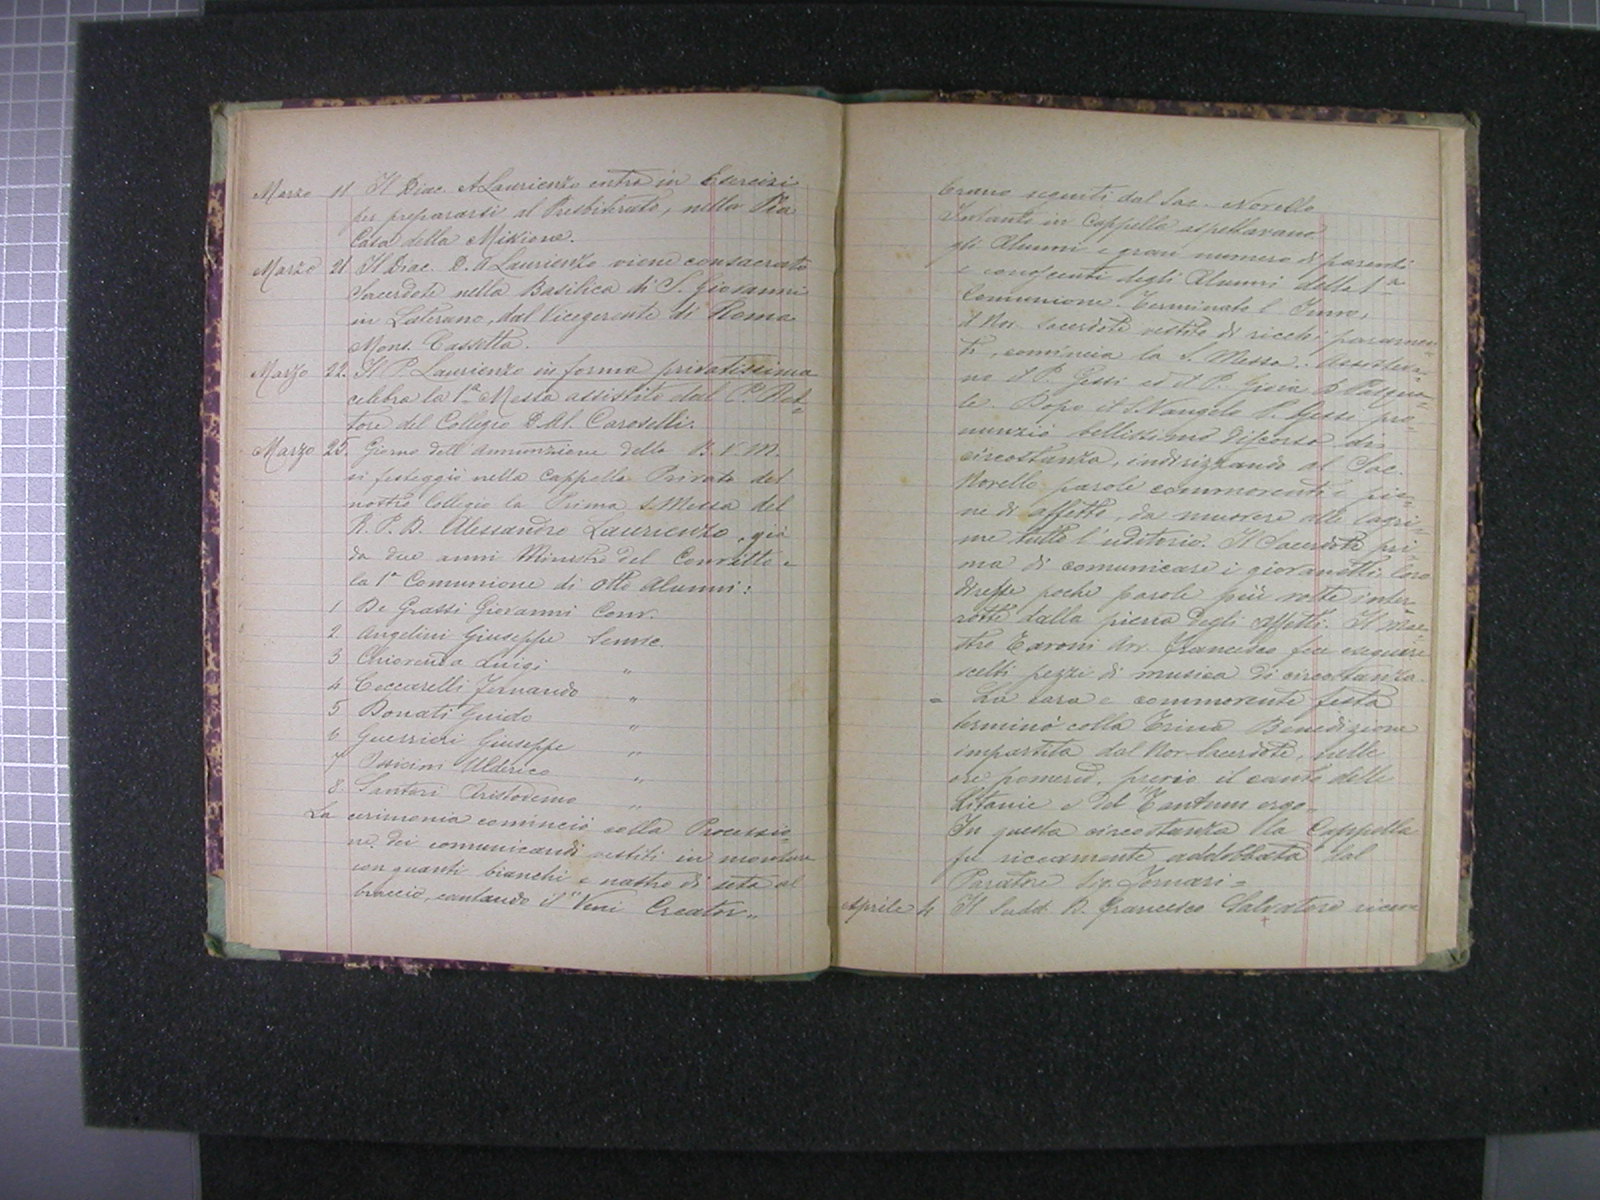 Marzo 11 Il Diac. A Laurienzo entra in Esercizi
per prepararsi al Presbiterato, nella Pia
Casa della Missione.
Marzo 21 Il Diac. D. A Laurienzo viene consacrato
Sacerdote nella Basilica di S. Giovanni
in Laterano, dal Vicegerente di Roma
Mons. Cassetta.
Marzo 22. Il P. Laurienzo in forma privatissima
celebra la 1a Messa assistito dal P. Ret=
tore del Collegio D. Al. Caroselli.
Marzo 25. Giorno dell'Annunzione della B. V. M.
si festeggiò nella Cappella Privata del
nostro Collegio la Prima S. Messa del
R. P. D. Alessandro Laurienzo, già
da due anni Ministro del Convitto e
la 1a Comunione di otto Alunni:
1 De Grassi Giovanni Conv.
2 Angelini Giuseppe
3 Chiorenza Luigi "
4 Ceccarelli Fernando "
5 Donati Guido "
6 Guerrieri Giuseppe "
7 Ulderico "
8. Santori Aristodemo "
La cerimonia cominciò colla Processio=
ne dei comunicandi vestiti in montura
con guanti bianchi e nastro di seta al
braccio, cantando il "Veni Creator„
Erano seguiti dal Sac. Novello
Intanto in Cappella aspettavano
gli Alunni e gran numero di parenti
e conoscenti degli Alunni della 1a
Comunione. Terminato l'Inno,
il Nov. Sacerdote vestito di ricchi paramen=
ti, comincia la S. Messa. Assisteva=
no il P. Gessi ed il P. Gioia D. Pasqua=
le. Dopo il S. Vangelo P. Gessi pro=
nunziò bellissimo discorso di
circostanza, indirizzando al Sac.
Novello parole commoventi e pie=
ne di affetto, da muovere alle lagri=
me tutto l'uditorio. Il Sacerdote pri=
ma di comunicare i giovanetti, loro
diresse poche parole più volte inter=
rotte dalla piena degli affetti. Il Mae=
stro Caroni Francesco fece eseguire
scelti pezzi di musica di circostanza.
= La cara e commovente festa
terminò colla Trina Benedizione
impartita dal Nov. Sacerdote, sulle
ore pomerid. previo il canto delle
Litanie e del "Tantum ergo„
In questa circostanza la Cappella
fu riccamente addobbata dal
Paratore Sig. Fornari =
Aprile 4 Il Sudd. D. Francesco Salvatore riceve